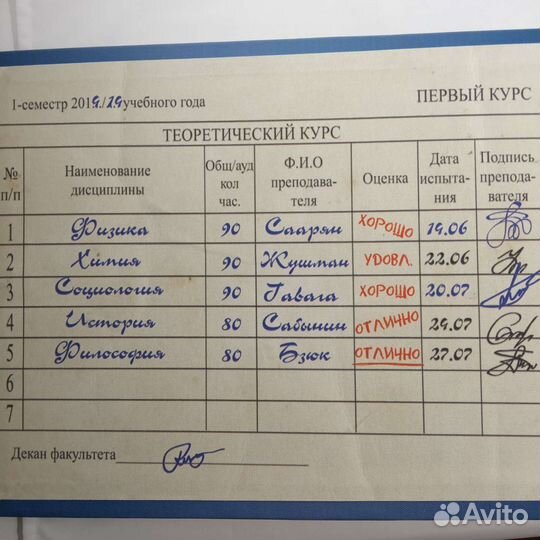 1-семестр 2019./29 учебного года ПЕРВЫЙ КУРС
ТЕОРЕТИЧЕСКИЙ КУРС
№ п/п Наименование дисциплины Общ/ауд кол час. Ф.И.О преподава-теля Оценка Дата испыта-ния Подпись препода-вателя
1 Физика 90 Саарян ХОРОШО 19.06
2 Химия 90 Жушман УДОВЛ. 22.06
3 Социология 90 Гавага ХОРОШО 20.07
4 История 80 Сабынин ОТЛИЧНО 29.07
5 Философия 80 Бзюк ОТЛИЧНО 27.07
6
7
Декан факультета
Avito